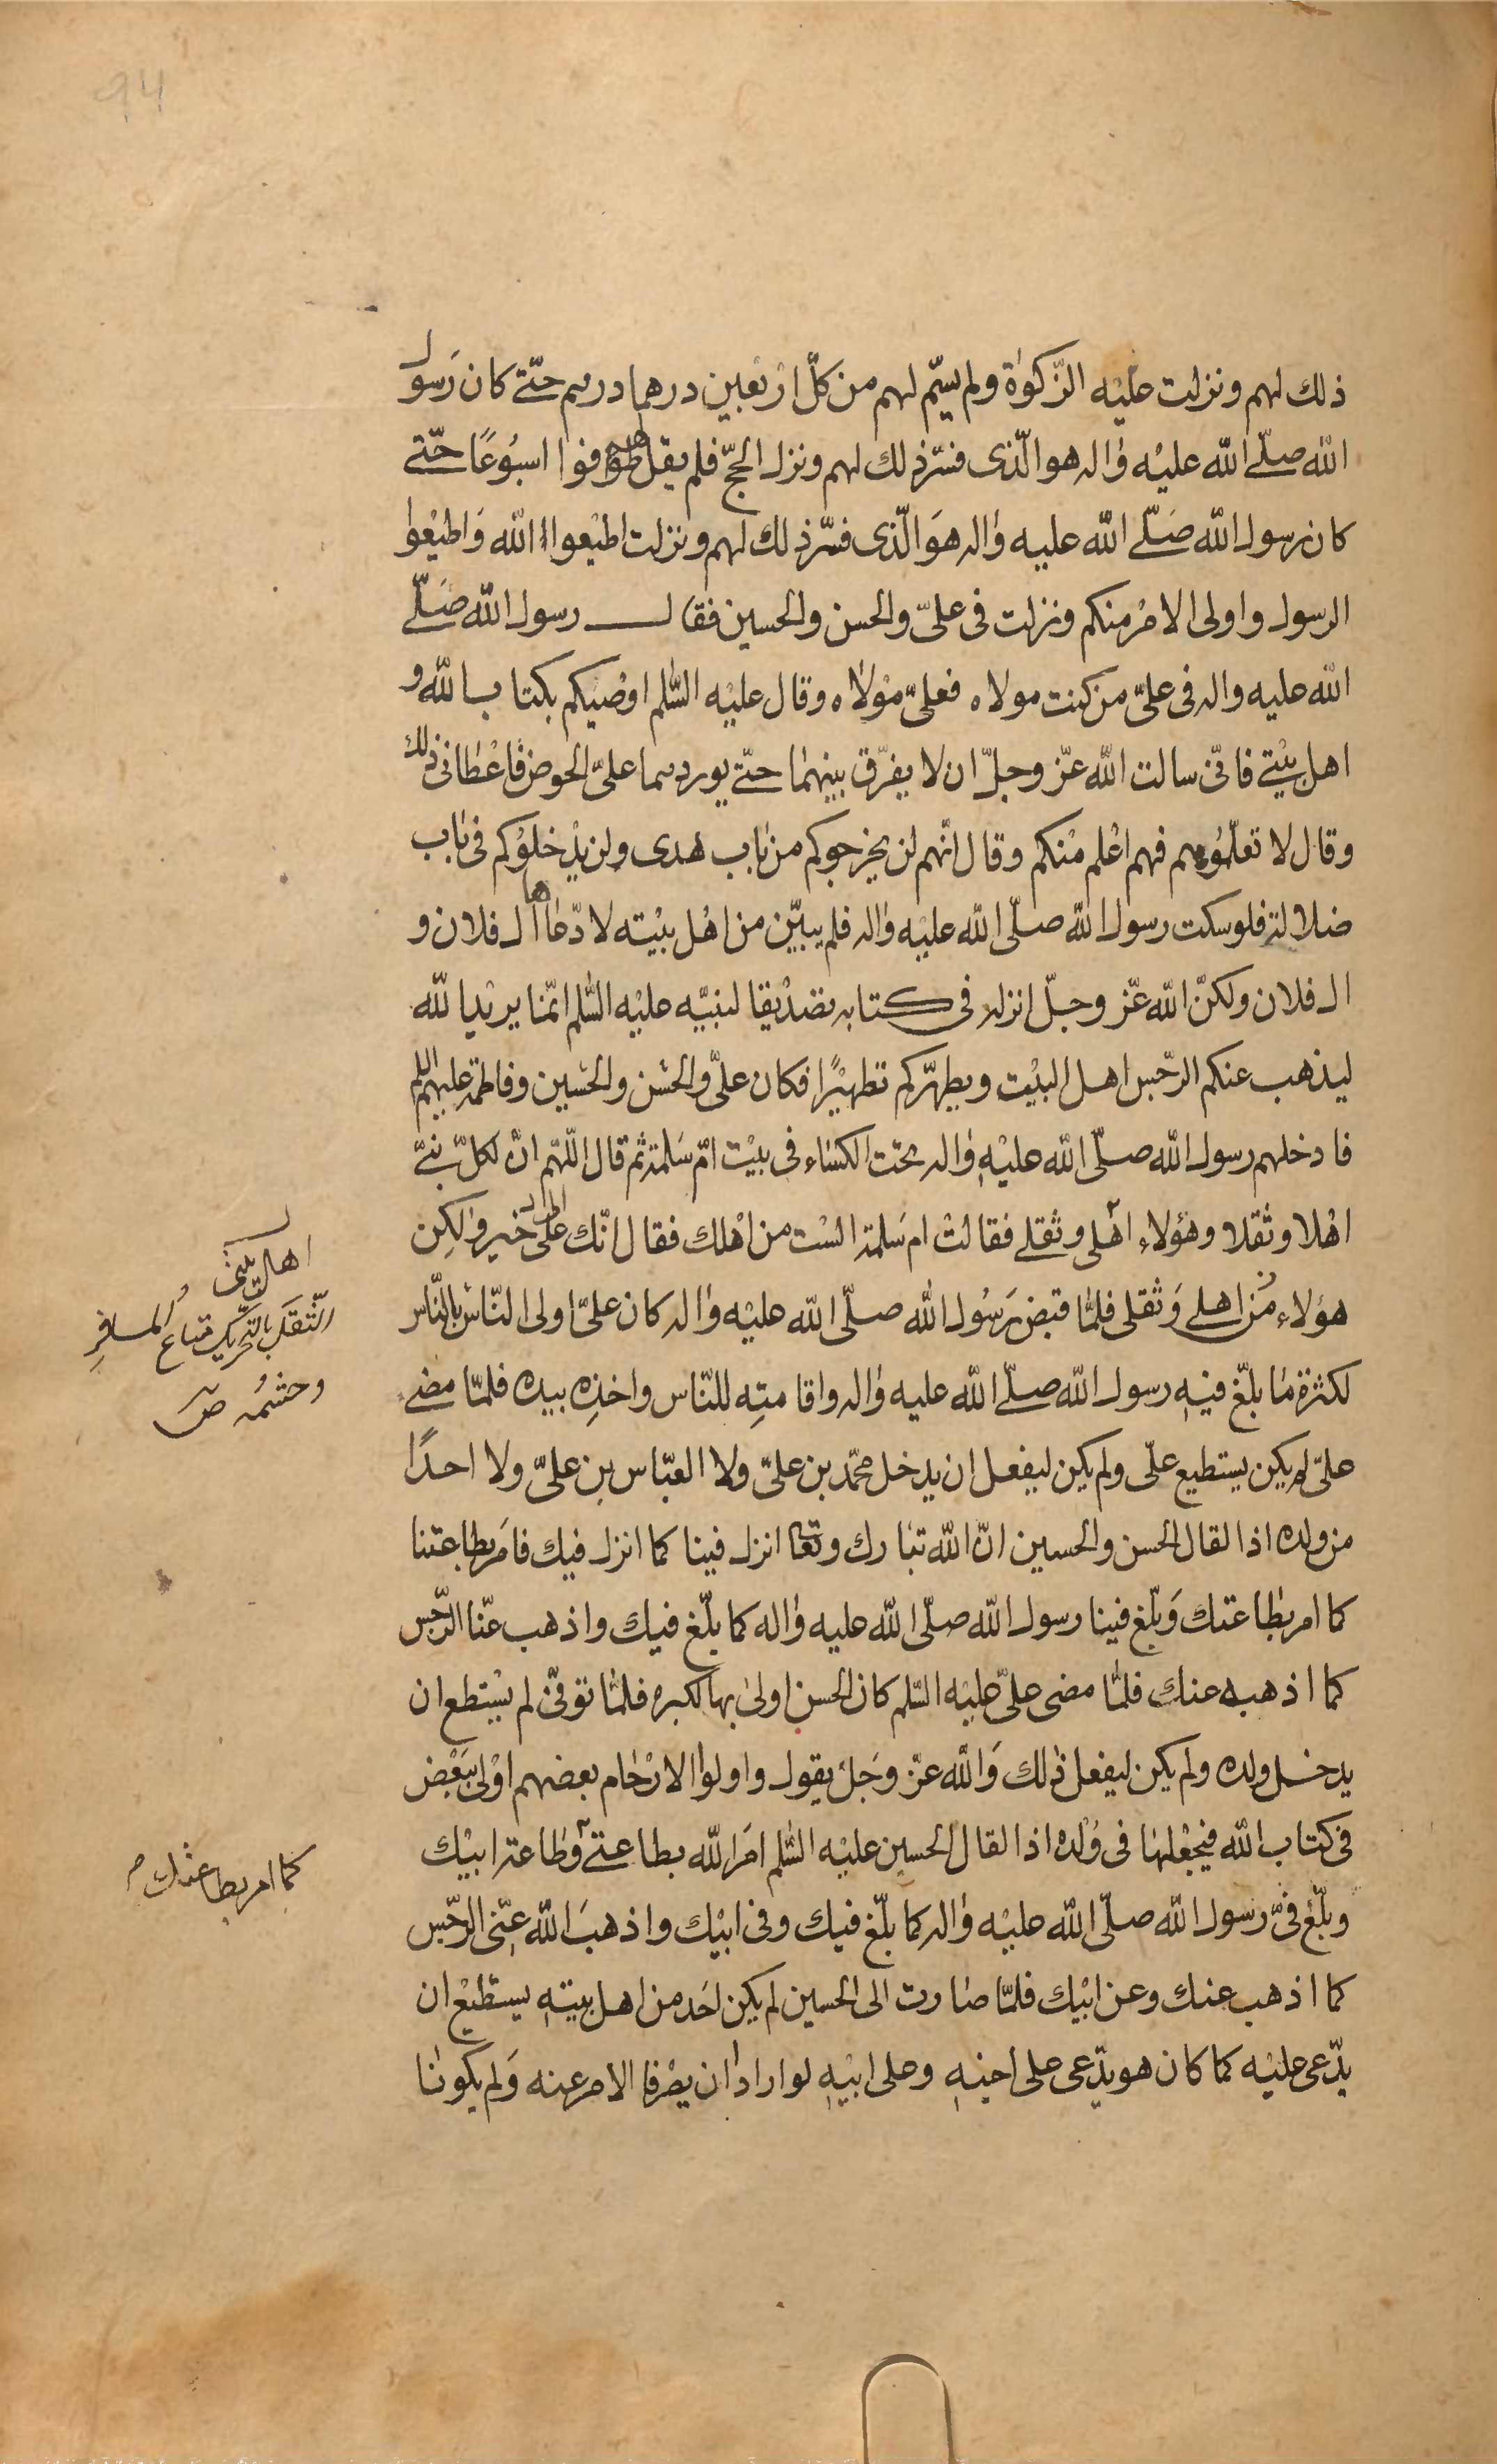 94
ذلك لهم ونزلت عليه الزّكوٰة ولم يسمّ لهم من كلّ اربعين درهما درهم حتّى كان رَسول
الله صلّى الله عليه واله هو الّذى فسّر ذلك لهم ونزل الحجّ فلم يقل لهم طوفوا اسبُوعًا حتّى
كان رسول الله صَلّى الله عليه واله هوَ الّذى فسّر ذلك لهم ونزلت اطيعوا الله وَاطيعُوا
الرسول واولى الامْر منكم ونزلت فى علىّ والحسن والحسين فقال رسول الله صَلّى
الله عليه واله فى علىّ من كنت مولاه فعلىّ مَوْلاه وقال عليْه السّلم اوصيكم بكتاب الله و
اهل بيْتى فانّى سالت الله عزّ وجلّ ان لا يفرّق بينهمَا حتّى يوردهما علىّ الحوض فاعْطانى ذلك
وقال لا تعلّمُوهم فهم اعْلم مْنكم وقال انّهم لن يخرجوكم من باب هدى ولن يُدْخلوُكم فى بَاب
ضلالة فلو سكت رسول الله صلّى الله عليْه واله فلم يبيّن من اهْل بيْته لادّعاها ال فلان و
ال فلان ولكنّ الله عزّ وجلّ انزله فى كتابه تصْديقا لنبيّه عليْه السّلم انّما يريْد الله
ليذهب عنكم الرّجس اهل البيْت ويطهّركم تطهيْرًا فكان علىّ والحسَن والحسَين وفاطمة عليهم السلم
فادخلهم رسول الله صلّى الله عليْهِ واله تحت الكسَاء فى بيْت امّ سَلمة ثم قال اللّهّم انّ لكلّ نبىّ
اهْلا وثقلا وهؤلاء اهْلى وثقلى فقالتْ ام سَلمة الست من اهْلك فقال انّك على خير ولكِن
هؤلاء من اهلى وَثقلى فلمّا قبض رَسُول الله صلّى الله عليْه واله كان علىّ اولى النّاس بالنّاس
لكثرة مَا بلّغ فيْهِ رسول الله صلّى الله عليه واله واقامتِه للنّاس واخذِه بيده فلمّا مضى
علىّ لم يكن يستطيع علّى ولم يكن ليفعل ان يدخل محمّد بن علىّ ولا العبّاس بن علىّ ولا احدًا
من ولده اذا لقال الحسن والحسين انّ الله تبَارك وتعالى انزل فينا كما انزل فيك فامَر بطاعتنا
كما امر بطاعتك وَبلّغ فينا رسول الله صلّى الله عليه واله كما بلّغ فيك واذهب عنّا الرّجس
كما اذهبه عنك فلمّا مضى علىّ عليْه السّلم كان الحسن اولى بها لكبره فلمّا توفّى لم يسْتطع ان
يدخل ولده ولم يكن ليفعل ذلك وَالله عزّ وجَلّ يقول واولوا الارْحَام بعضهم اوْلى ببَعْض
فى كتاب الله فيجْعلهَا فى وُلْده اذا لقال الحسين عليْه السّلم امَر الله بطاعتى وطاعة ابيْك
وبلّغ فىّ رسول الله صلّى الله عليْه واله كما بلّغ فيك وفى ابيْك واذهبَ الله عنّى الرّجس
كما اذهب عنك وعن ابيْك فلمّا صَارت الى الحسين لم يكن احَد من اهل بيتهِ يستطيْع ان
يدّعى عليْه كما كان هو يدّعى على اخيْهِ وعلى ابيْهِ لو ارادا ان يصْرفا الامر عنه وَلم يكونَا
اهل بيتى
الثّقَل بالتحريك متاع المسافر
وحشمُه ص
كما امر بطاعتك